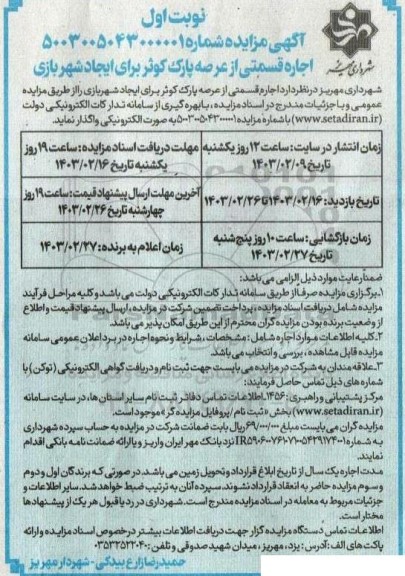 نوبت اول
آگهی مزایده شماره ۵۰۰۳۰۰۵۰۴۳۰۰۰۰۰۱
اجاره قسمتی از عرصه پارک کوثر برای ایجاد شهربازی
شهرداری مهریز
شهرداری مهریز در نظر دارد اجاره قسمتی از عرصه پارک کوثر برای ایجاد شهربازی را از طریق مزایده
عمومی و با جزئیات مندرج در اسناد مزایده، با بهره گیری از سامانه تدارکات الکترونیکی دولت
(www.setadiran.ir) با شماره مزایده ۵۰۰۳۰۰۵۰۴۳۰۰۰۰۰۱ به صورت الکترونیکی واگذار نماید.
زمان انتشار در سایت: ساعت ۱۲ روز یکشنبه تاریخ ۱۴۰۳/۰۲/۰۹
مهلت دریافت اسناد مزایده: ساعت ۱۹ روز یکشنبه تاریخ ۱۴۰۳/۰۲/۱۶
تاریخ بازدید: ۱۴۰۳/۰۲/۱۶ تا ۱۴۰۳/۰۲/۲۶
آخرین مهلت ارسال پیشنهاد قیمت: ساعت ۱۹ روز چهارشنبه تاریخ ۱۴۰۳/۰۲/۲۶
زمان بازگشایی: ساعت ۱۰ روز پنج شنبه تاریخ ۱۴۰۳/۰۲/۲۷
زمان اعلام به برنده: ۱۴۰۳/۰۲/۲۷
ضمنا رعایت موارد ذیل الزامی می باشد:
۱. برگزاری مزایده صرفا از طریق سامانه تدارکات الکترونیکی دولت می باشد و کلیه مراحل فرآیند
مزایده شامل دریافت اسناد مزایده، پرداخت تضمین شرکت در مزایده، ارسال پیشنهاد قیمت و اطلاع
از وضعیت برنده بودن مزایده گران محترم از این طریق امکان پذیر می باشد.
۲. کلیه اطلاعات موارد اجاره شامل: مشخصات، شرایط و نحوه اجاره در برد اعلان عمومی سامانه
مزایده قابل مشاهده، بررسی و انتخاب می باشد.
۳. علاقه مندان به شرکت در مزایده می بایست جهت ثبت نام و دریافت گواهی الکترونیکی (توکن) با
شماره های ذیل تماس حاصل فرمایند:
مرکز پشتیبانی و راهبری: ۱۴۵۶. اطلاعات تماس دفاتر ثبت نام سایر استان ها، در سایت سامانه
(www.setadiran.ir) بخش «ثبت نام/پروفایل مزایده گر» موجود است.
مزایده گران می بایست مبلغ ۶۹/۰۰۰/۰۰۰ ریال بابت ضمانت شرکت در مزایده به حساب سپرده شهرداری
نزد بانک مهر ایران واریز و یا ارائه ضمانت نامه بانکی اقدام
نمایند.
مدت اجاره یک سال از تاریخ ابلاغ قرارداد و تحویل زمین می باشد. در صورتی که برندگان اول و دوم
و سوم مزایده حاضر به انعقاد قرارداد نشوند. سپرده آنان به ترتیب ضبط خواهد شد. سایر اطلاعات و
جزئیات مربوط به معامله در اسناد مزایده مندرج است. شهرداری در رد یا قبول هر یک از پیشنهادها
مختار است.
اطلاعات تماس دستگاه مزایده گزار جهت دریافت اطلاعات بیشتر در خصوص اسناد مزایده و ارائه
پاکت های الف: آدرس: یزد، مهریز، میدان شهید صدوقی و تلفن: ۰۳۵۳۲۵۲۲۰۴۰
حمیدرضا زارع بیدکی - شهردار مهریز